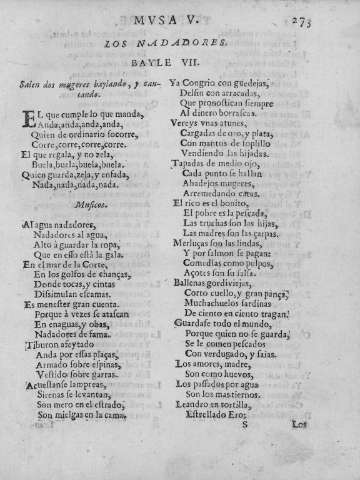 MVSA V.
273
LOS NADADORES.
BAYLE VII.
Salen dos mugeres baylando, y cantando.
EL que cumple lo que manda,
Anda, anda, anda, anda,
Quien de ordinario socorre,
Corre, corre, corre, corre.
El que regala, y no zela,
Buela, buela, buela, buela.
Quien guarda, zela, y enfada,
Nada, nada, nada, nada.
Musicos.
Al agua nadadores,
Nadadores al agua,
Alto à guardar la ropa,
Que en esso està la gala.
En el mar de la Corte,
En los golfos de chanças,
Donde tocas, y cintas
Dissimulan escamas.
Es menester gran cuenta.
Porque à vezes se atascan
En enaguas, y obas,
Nadadores de fama.
Tiburon afeytado
Anda por essas plaças,
Armado sobre espinas,
Vestido sobre garras.
Acuestanse lampreas,
Sirenas se levantan,
Son mero en el estrado,
Son mielgas en la cama,
Ya Congrio con guedejas,
Delfin con arracadas,
Que pronostican siempre
Al dinero borrascas.
Vereys vnas atunes,
Cargadas de oro, y plata,
Con mantos de soplillo
Vendiendo las hijadas.
Tapadas de medio ojo,
Cada punto se hallan
Abadejos mugeres,
Arremedando caras.
El rico es el bonito,
El pobre es la pescada,
Las truchas son las hijas,
Las madres son las carpas.
Merluças son las lindas,
Y por salmon se pagan:
Comedias como pulpos,
Açotes son su salsa.
Ballenas gordiviejas,
Corto cuello, y gran pança,
Muchachuelos sardinas
De ciento en ciento tragan.
Guardase todo el mundo,
Porque quien no se guarda,
Se le comen pescados
Con verdugado, y saias.
Los amores, madre,
Son como huevos,
Los passados por agua
Son los mas tiernos.
Leandro en tortilla,
Estrellado Ero;
S
Los